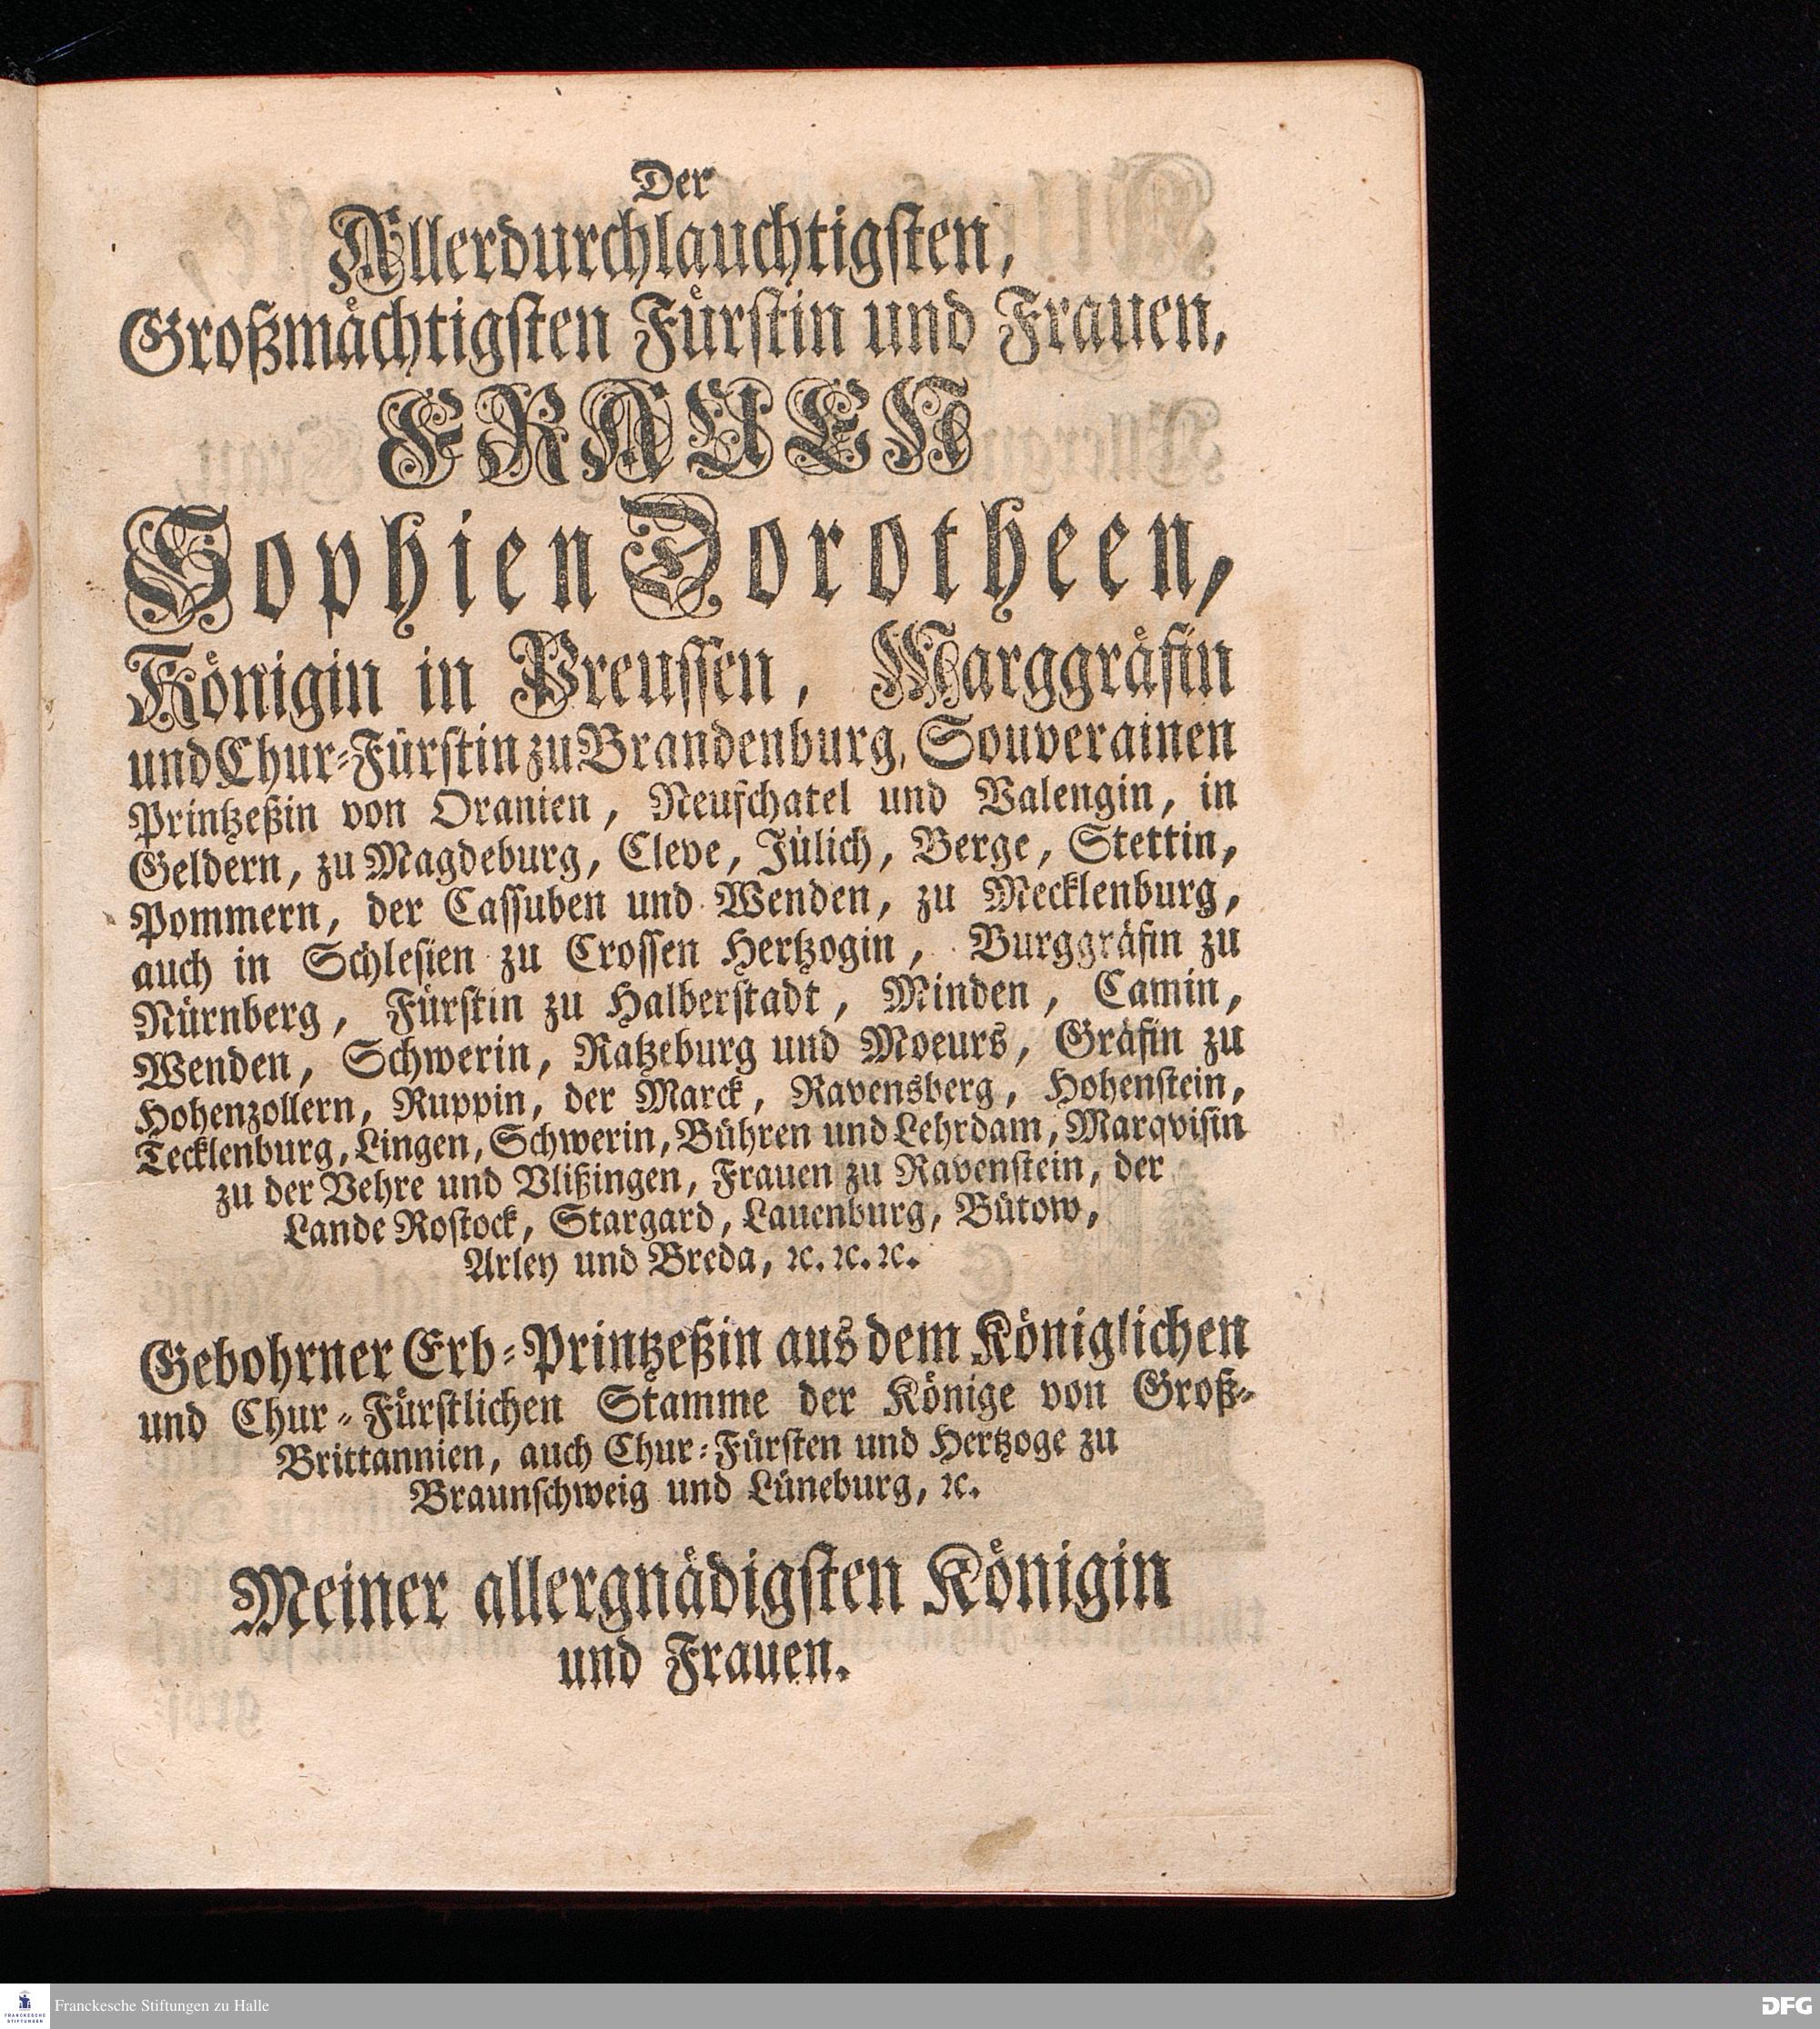 Der
Allerdurchlauchtigsten,
Großmächtigsten Fürstin und Frauen,
FRAUEN
Sophien Dorotheen,
Königin in Preussen, Marggräfin
und Chur-Fürstin zu Brandenburg, Souverainen
Printzeßin von Oranien, Neufchatel und Valengin, in
Geldern, zu Magdeburg, Cleve, Jülich, Berge, Stettin,
Pommern, der Cassuben und Wenden, zu Mecklenburg,
auch in Schlesien zu Crossen Hertzogin, Burggräfin zu
Nürnberg, Fürstin zu Halberstadt, Minden, Camin,
Wenden, Schwerin, Ratzeburg und Moeurs, Gräfin zu
Hohenzollern, Ruppin, der Marck, Ravensberg, Hohenstein,
Tecklenburg, Lingen, Schwerin, Bühren und Lehrdam, Marqvisin
zu der Vehre und Vlißingen, Frauen zu Ravenstein, der
Lande Rostock, Stargard, Lauenburg, Bütow,
Arley und Breda, ꝛc. ꝛc. ꝛc.
Gebohrner Erb-Printzeßin aus dem Königlichen
und Chur-Fürstlichen Stamme der Könige von Groß-
Brittannien, auch Chur-Fürsten und Hertzoge zu
Braunschweig und Lüneburg, ꝛc.
Meiner allergnädigsten Königin
und Frauen.
FRANCKESCHE
STIFTUNGEN
Franckesche Stiftungen zu Halle
DFG